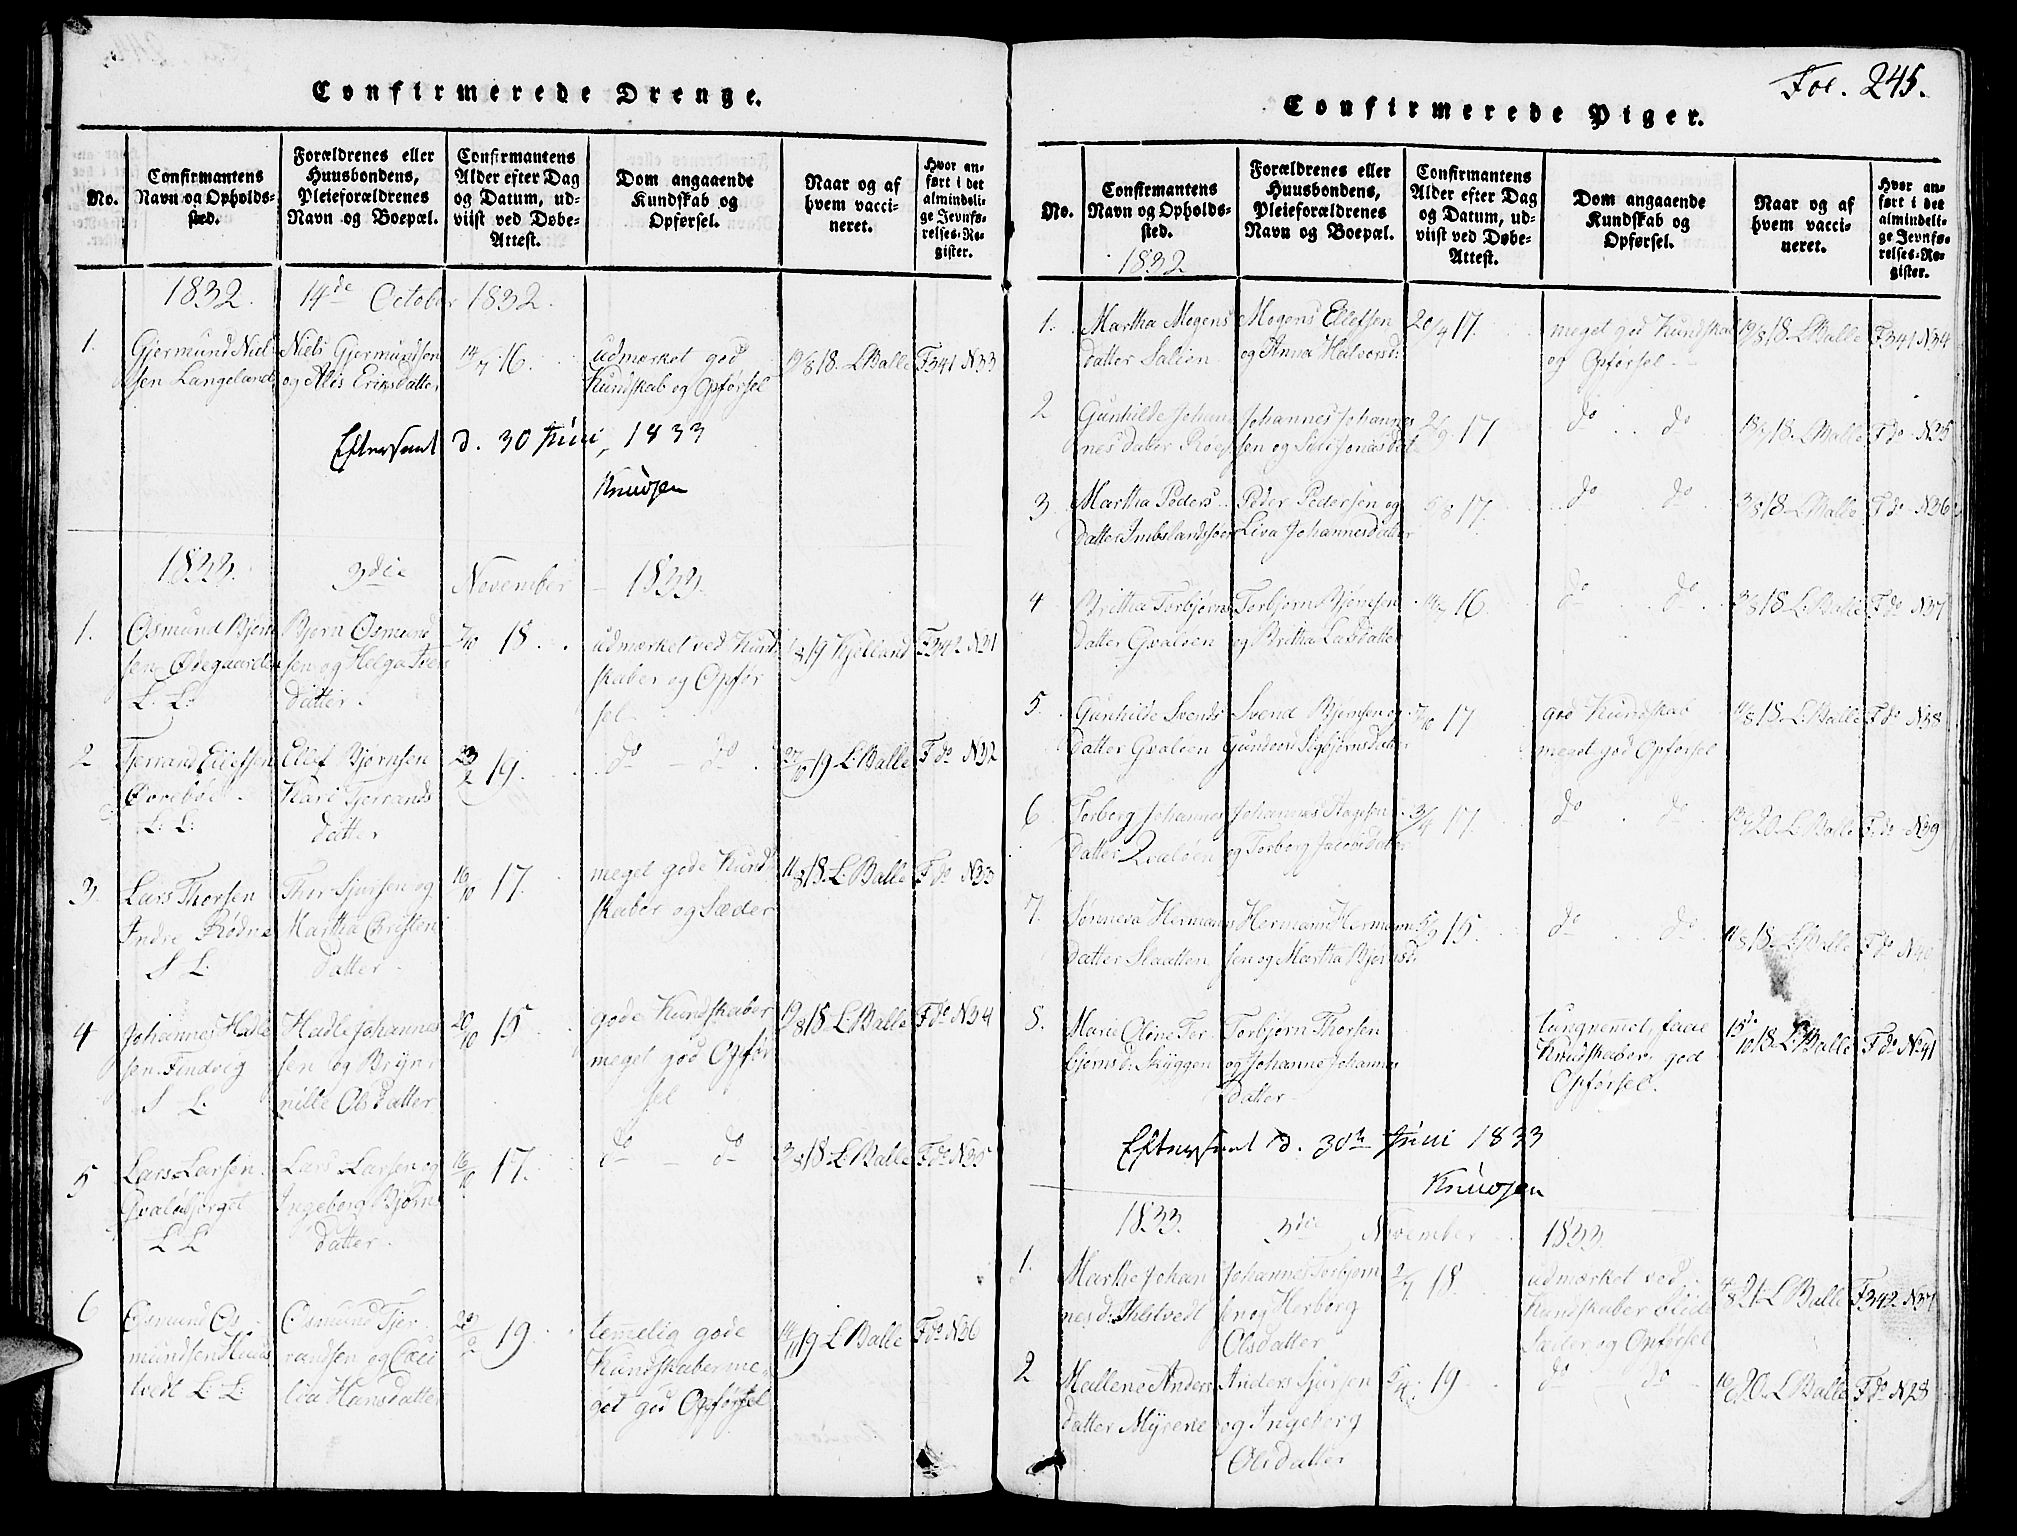 Confirmerede Drenge.
No.
Confirmantens
Navn og Opholds-
sted.
Forældrenes eller
Huusbondens,
Pleieforældrenes
Navn og Boepæl.
Confirmantens
Alder efter Dag
og Datum, ud-
viist ved Døbe-
Attest.
Dom angaaende
Kundskab og
Opførsel.
Naar og af
hvem vacci-
neret.
Hvor an-
ført i det
almindeli-
ge Jevnfø-
relses-Re-
gister.
1832. 14de October 1832.
1.
Gjermund Niel-
sen Langeland
Niels Gjermundsen
og Alis Eriksdatter
14/7 16.
udmærket god
Kundskab og Opførsel
19/8 18. L Balle
F341 N33
Efterseet d. 30 Juni, 1833
Knudsen
1833. 3die November 1833.
1.
Osmund Bjørn
sen Ødegaarden
L. L.
Bjørn Osmund
sen og Helga Iver
datter.
18.
udmærket ved Kund
skaber og Opfør
sel.
19 Kjelland
F342 N31
2
Tjerrand Ellefsen
L. L.
Elef Bjørnsen
Kari Tjerrands
datter
23/2 19.
do - do.
19 L. Balle
F do N32
3.
Lars Thorsen
Indre Rødne
S L.
Thor Sjursen og
Martha Christen
datter.
16/10 17.
meget gode Kund
skaber og Sæder
11/8 18. L. Balle
F do N33
4
Johannes Hadle
sen Findvig
S L.
Hadle Johannes
sen og Bryn
nille Olsdatter
20/10 15.
gode Kundskaber
meget god Opfør
sel
19/8 18 L Balle
F do N34
5
Lars Larsen
L L
Lars Larsen og
Ingeborg Bjørns
datter.
16/10 17.
do - do
3/8 18. L. Balle
F do N35
6
Osmund Os-
mundsen Hund
tvedt L. L.
Osmund Tjer
randsen og Ceci
lia Hansdatter
19.
temelig gode
Kundskaber me-
get god Opførsel
14/11 19 L. Balle
F do N36
Fol. 245.
Confirmerede Piger.
No.
Confirmantens
Navn og Opholds-
sted.
1832
Forældrenes eller
Huusbondens,
Pleieforældrenes
Navn og Boepæl.
Confirmantens
Alder efter Dag
og Datum, ud-
viist ved Døbe-
Attest.
Dom angaaende
Kundskab og
Opførsel.
Naar og af
hvem vacci-
neret.
Hvor an-
ført i det
almindeli-
ge Jevnfø-
relses-Re-
gister.
1.
Martha Mogens
datter Salien
Mogens Ellefsen
og Anna Halvorsd:
20/4 17.
meget god Kundskab
og Opførsel.
19/8 18. L Balle
F341 N34
2
Gunhilde Johan
nesdatter
Johannes Johannes
sen og
17.
do do
18. L. Balle
F do N35
3
Martha Peders
datter Imbslandssøen
Peder Pedersen og
Liva Johannesdatter
5/8 17.
do do
3/8 18. L. Balle
F do N36
4
Britha Torbjørns
datter Gvaløen
Torbjørn Bjørnsen
og Britha Larsdatter
16.
do do
3/8 18. L. Balle
F do N37
5
Gunhilde Svends
datter Gvaløen
Svend Bjørnsen og
17
god Kundskab
meget god Opførsel
18. L. Balle
F do N38
6
Torborg Johannes
datter Qvaløen
Johannes Aagesen
og Torborg Jacobsdatter
3/4 17.
do do
20. L. Balle
F do N39
7.
Sønneva Hermann
datter Slaatten
Hermann Hermann
sen og Martha Bjørnsd.
5/9 15.
do do
11/8 18. L. Balle
F do N40
8.
Marie Oline Tor
bjørnsd: Skyggen
Torbjørn Thorsen
og Johanne Johannes
datter
tungnemet, feile
Kundskaber. god
Opførsel.
18. L. Balle
F do No41
Efterseet d. 30te Juni 1833
Knudsen
1833. 3die November 1833
1.
Marthe Johan
nesd:
Johannes Torbjørn
sen og Herborg
Olsdatter
2/7 18
udmærket ved
Kundskaber
Sæder og Opførsel
21. L Balle
F342 N37
2
Mallene Anders
datter Myrene
Anders Sjursen
og Ingeborg
Olsdatter
19
do do
20. L Balle
F do N28